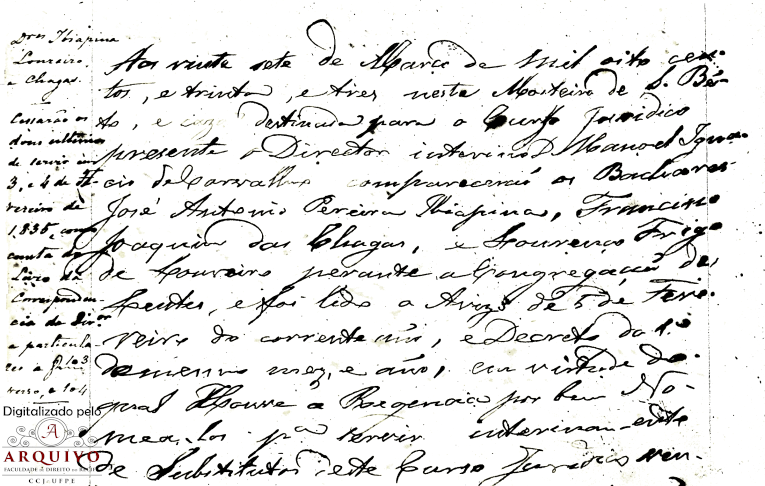 Dres Ibiapina
Loureiro,
e Chagas.
Cessarão os
dous ultimos
de servir em
3, e 4 de Fe
vereiro de
1835, como
consta do
Livro da
Corresponden
cia do Dir.or
e particula
res a 103
verso, e 104
Aos vinte sete de Março de mil oito cen-
tos, e trinta, e tres neste Mosteiro de S. Bẽ-
to, e caza destinada para o Curso Juridico
presente o Director interino D. Manoel Igna
cio de Carvalho comparecerão os Bachareis
José Antonio Pereira Ibiapina, Francisco
Joaquim das Chagas, e Lourenço Trigo
de Loureiro perante a Congregação de
Lentes, e foi lido o Avizo de 5 de Feve-
reiro do corrente ano, e Decreto do 1.º
do mesmo mez, e ano, em virtude do
qual Houve a Regencia por bem No-
mea-los pª servir interinamente
de Substitutos deste Curso Juridico
Digitalizado pelo
ARQUIVO
FACULDADE DE DIREITO DO RECIFE
CCJ-UFPE